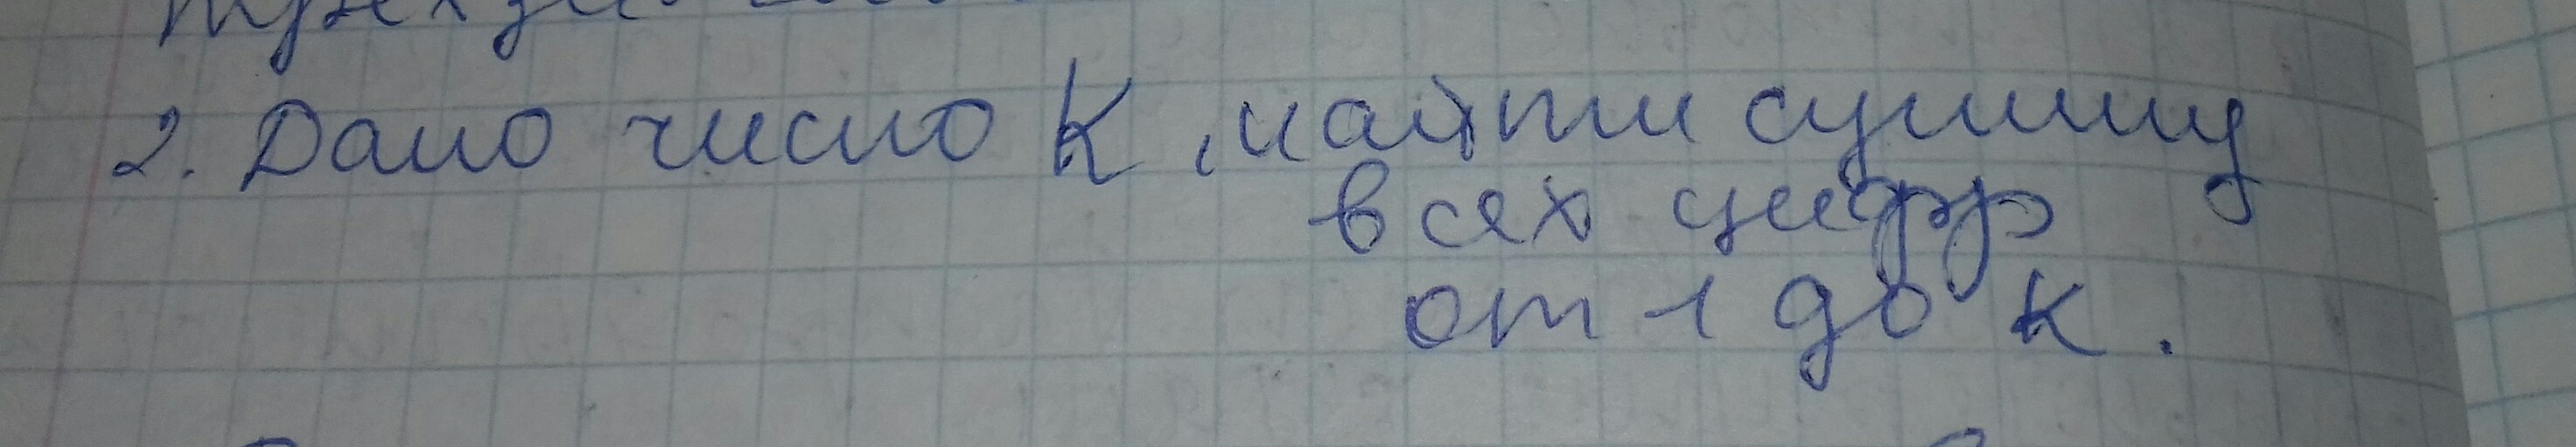 2. Дано число К, найти сумму
всех цифр
от 1 до К.